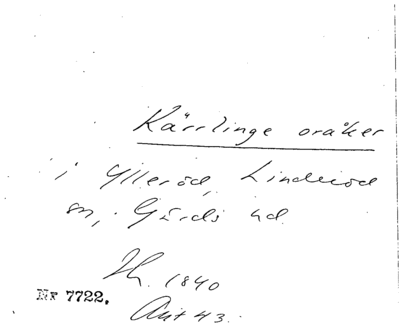 Kärrlinge oråker
i Ylleröd, Linderöd
sn, Gärds hd.
Sk. 1840
Nr 7722.
Akt 43.